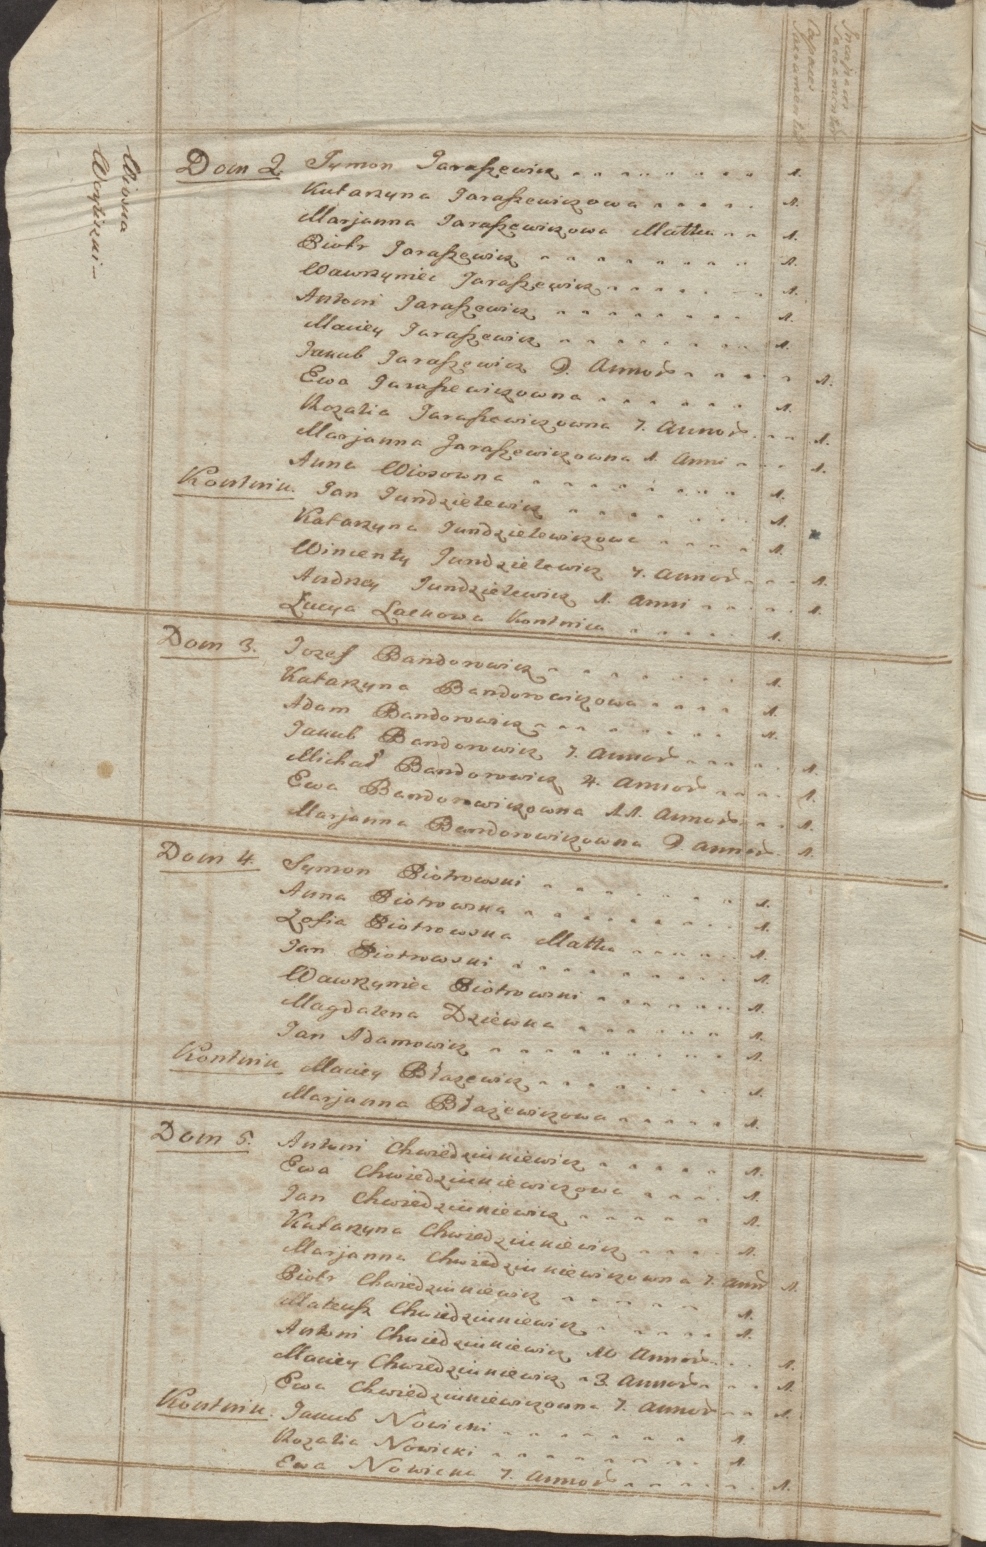 Capaces Sacramenti
Incapaces Sacramenti
Wiosna
Dom 2. Symon Jaraszewicz 1.
Katarzyna Jaraszewiczowa 1.
Marjanna Jaraszewiczowa Matka 1.
Piotr Jaraszewicz 1.
Wawrzyniec Jaraszewicz 1.
Antoni Jaraszewicz 1.
Maciey Jaraszewicz 1.
Jakub Jaraszewicz 9. Annor 1.
Ewa Jaraszewiczowna 1.
Rozalia Jaraszewiczowna 7. Annor 1.
Marjanna Jaraszewiczowna 1. Anni 1.
Anna Wiosowna 1.
Kontnik. Jan Jundzielewicz 1.
Katarzyna Jundzielewiczowa 1.
Wincenty Jundzielewicz 4. Annor 1.
Andrzey Jundzielewicz 1. Anni 1.
Łucya Lackowa Kontnica 1.
Dom 3. Jozef Bandorowicz 1.
Katarzyna Bandorowiczowa 1.
Adam Bandorowicz 1.
Jakub Bandorowicz 7. Annor 1.
Michał Bandorowicz 4. Annor 1.
Ewa Bandorowiczowna 11. Annor 1.
Marjanna Bandorowiczowna 9 annor 1.
Dom 4. Symon Piotrowski 1.
Anna Piotrowska 1.
Zofia Piotrowska Matka 1.
Jan Piotrowski 1.
Wawrzyniec Piotrowski 1.
Magdalena Dziewka 1.
Jan Adamowicz 1.
Kontnik Maciey Błażewicz 1.
Marjanna Błażewiczowa 1.
Dom 5. Antoni Chwiedziukiewicz 1.
Ewa Chwiedziukiewiczowa 1.
Jan Chwiedziukiewicz 1.
Katarzyna Chwiedziukiewicz 1.
Marjanna Chwiedziukiewiczowna 7. Ann 1.
Piotr Chwiedziukiewicz 1.
Mateusz Chwiedziukiewicz 1.
Antoni Chwiedziukiewicz 10 Annor 1.
Maciey Chwiedziukiewicz 3. Annor 1.
Ewa Chwiedziukiewiczowna 7. Annor 1.
Kontnik. Jakub Nowicki 1.
Rozalia Nowicki 1.
Ewa Nowicka 7. Annor 1.